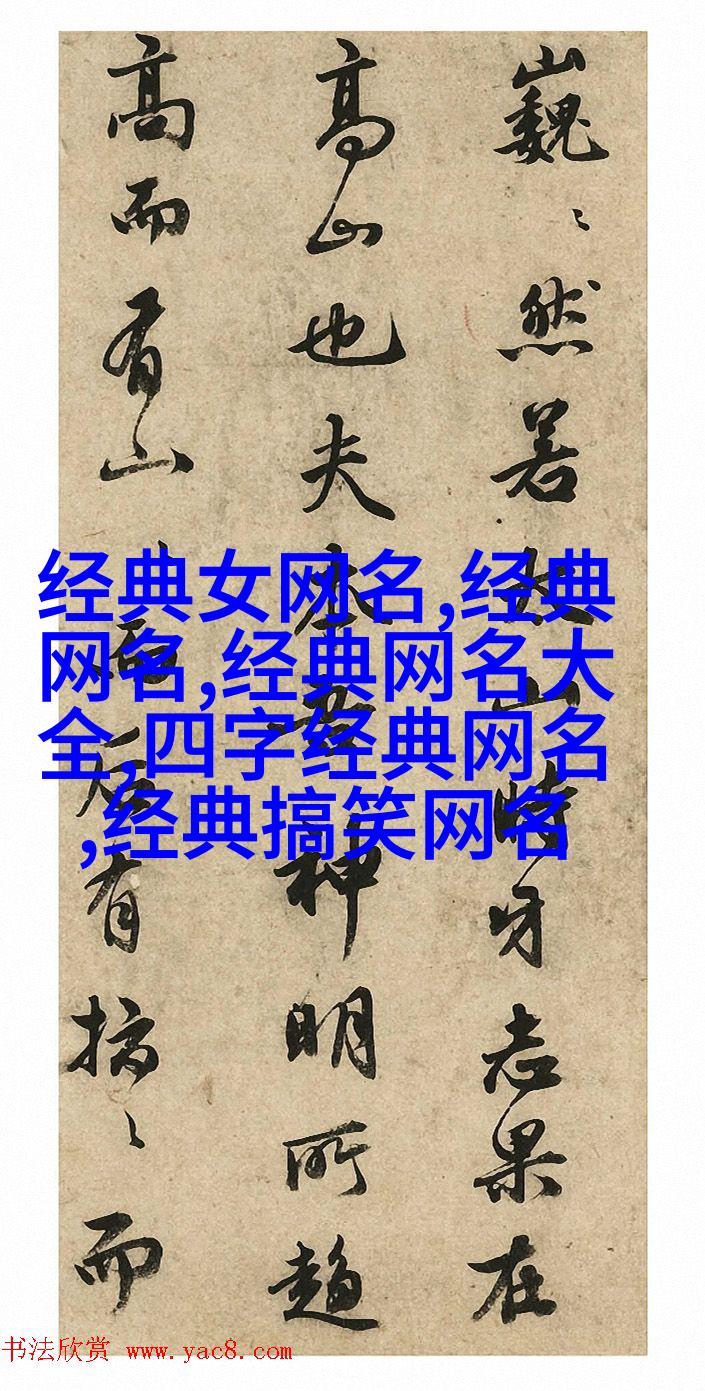 巍〻然若山時牙志果在
高山也夫神明所趨
高而有山有而
经典女网名,经典
网名,经典网名大
全,四字经典网名
,经典搞笑网名
书法欣赏 www.yac8.com